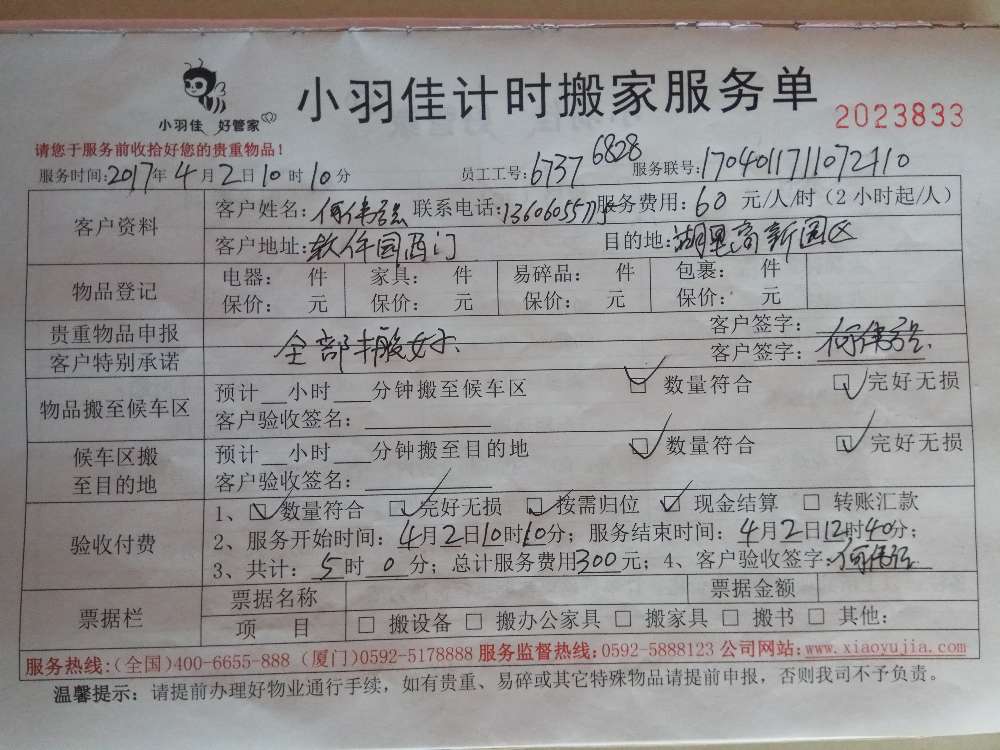 小羽佳 好管家
小羽佳计时搬家服务单
2023833
请您于服务前收拾好您的贵重物品！
服务时间:2017年4月2日10时10分 员工工号:6737 6828 服务联号:1704011711072110
客户资料
客户姓名:何伟 联系电话:136060557 服务费用:60元/人/时（2小时起/人）
客户地址:软件园西门 目的地:湖里高新园区
物品登记
电器： 件 家具： 件 易碎品： 件 包裹： 件
保价： 元 保价： 元 保价： 元 保价： 元
贵重物品申报 客户签字：
客户特别承诺 全部搬好 客户签字：何伟
物品搬至候车区
预计__小时___分钟搬至候车区 数量符合 完好无损
客户验收签名：
候车区搬至目的地
预计__小时___分钟搬至目的地 数量符合 完好无损
客户验收签名：
验收付费
1、数量符合 完好无损 按需归位 现金结算 转账汇款
2、服务开始时间：4月2日10时10分；服务结束时间：4月2日12时40分；
3、共计：5时0分；总计服务费用300元；4、客户验收签字:何伟
票据栏
票据名称 票据金额
项 目 搬设备 搬办公家具 搬家具 搬书 其他:
服务热线:(全国)400-6655-888 (厦门)0592-5178888 服务监督热线:0592-5888123 公司网站:www.xiaoyujia.com
温馨提示：请提前办理好物业通行手续，如有贵重、易碎或其它特殊物品请提前申报，否则我司不予负责。